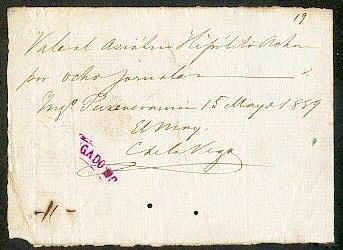 19
Vale al Asiático Hipólito Acha
por ocho jornales
Ingo 15 Mayo 1859
El May.
C de la Vega
GADO
-11-